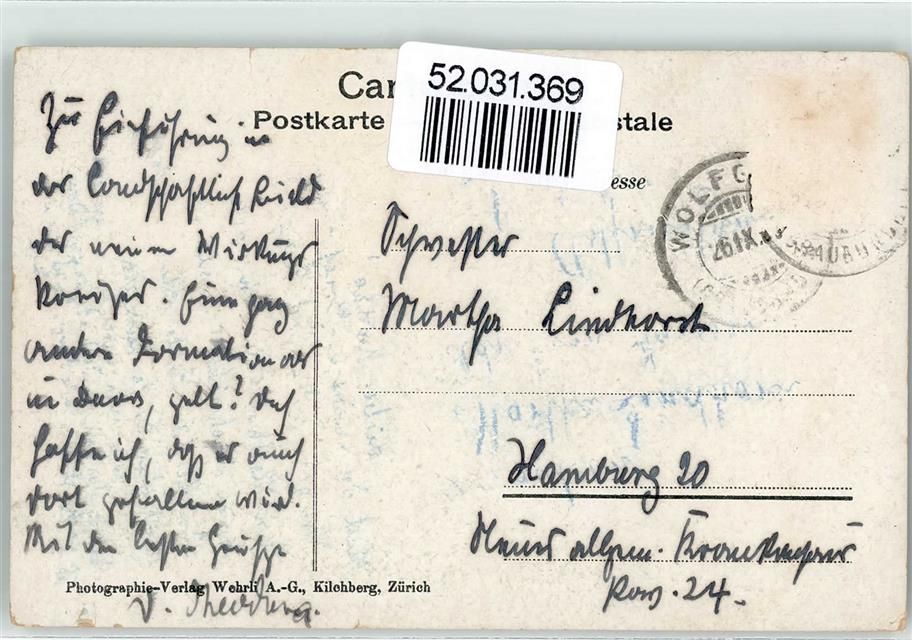 52.031.369
Car
Postkarte stale
esse
WOLFG
26.IX
Zur Einführung in
das landschaftlich Bild
des neuen Wirkungs
kreises. Eine ganz
andere Formation als
in Davos, gelt? Doch
hoffe ich, daß es auch
dort gefallen wird.
Mit den besten Grüßen
Schwester
Martha Lindhorst
Hamburg 20
Neues allgem. Krankenhaus
Pav. 24.
Photographie-Verlag Wehrli A.-G., Kilchberg, Zürich